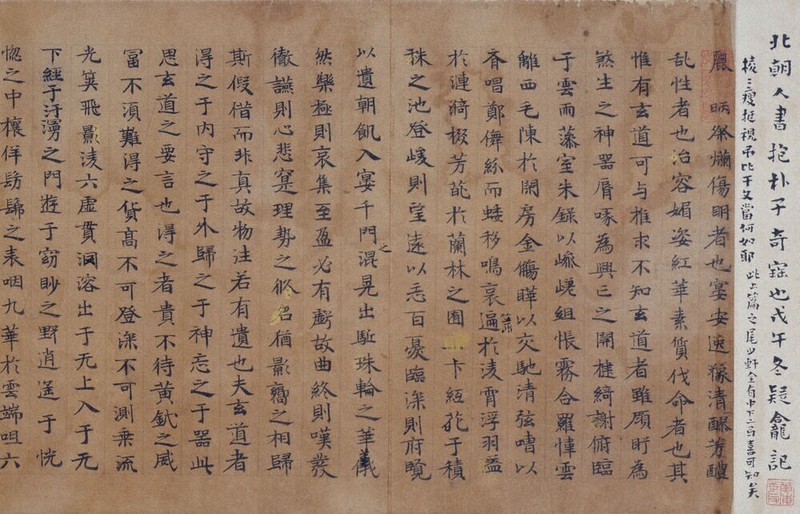 北朝人書抱朴子奇寶也戊午冬疑盦記
麗炳爛傷明者也宴安逸豫清醪芳醴
乱性者也冶容媚姿紅華素質伐命者也其
惟有玄道可与推求不知玄道者雖顧眄為
煞生之神器脣喙為興亡之開楗綺榭俯臨
于雲雨藻室朱錄以嵾嵯組帳霧合羅幃雲
離西毛陳於閑房金觴曄以交馳清弦嘈以
斉唱鄭儛紛而蜲移鳴哀簫遍於淩霄浮羽蓋
於漣漪掇芳蘤於蘭林之囿卞紅葩于積
珠之池登峻則望遠以忘百憂臨深則府覽
以遺朝飢入宴千門之混晃出駈珠輪之華儀
然樂極則哀集至盈必有虧故曲終則嘆發
徹讌則心悲寔理勢之似名猶影響之相歸
斯假借而非真故物注若有遺也夫玄道者
得之于内守之于外歸之于神忘之于器此
思玄道之要言也得之者貴不待黄鉞之威
冨不湏難得之貨高不可登深不可測乘流
光筞飛影淩六虚貫洞溶出于无上入于无
下經于汙灣之門遊于窈眇之野逍遥于恍
惚之中穰佯髣髴之表咽九華於雲端咀六